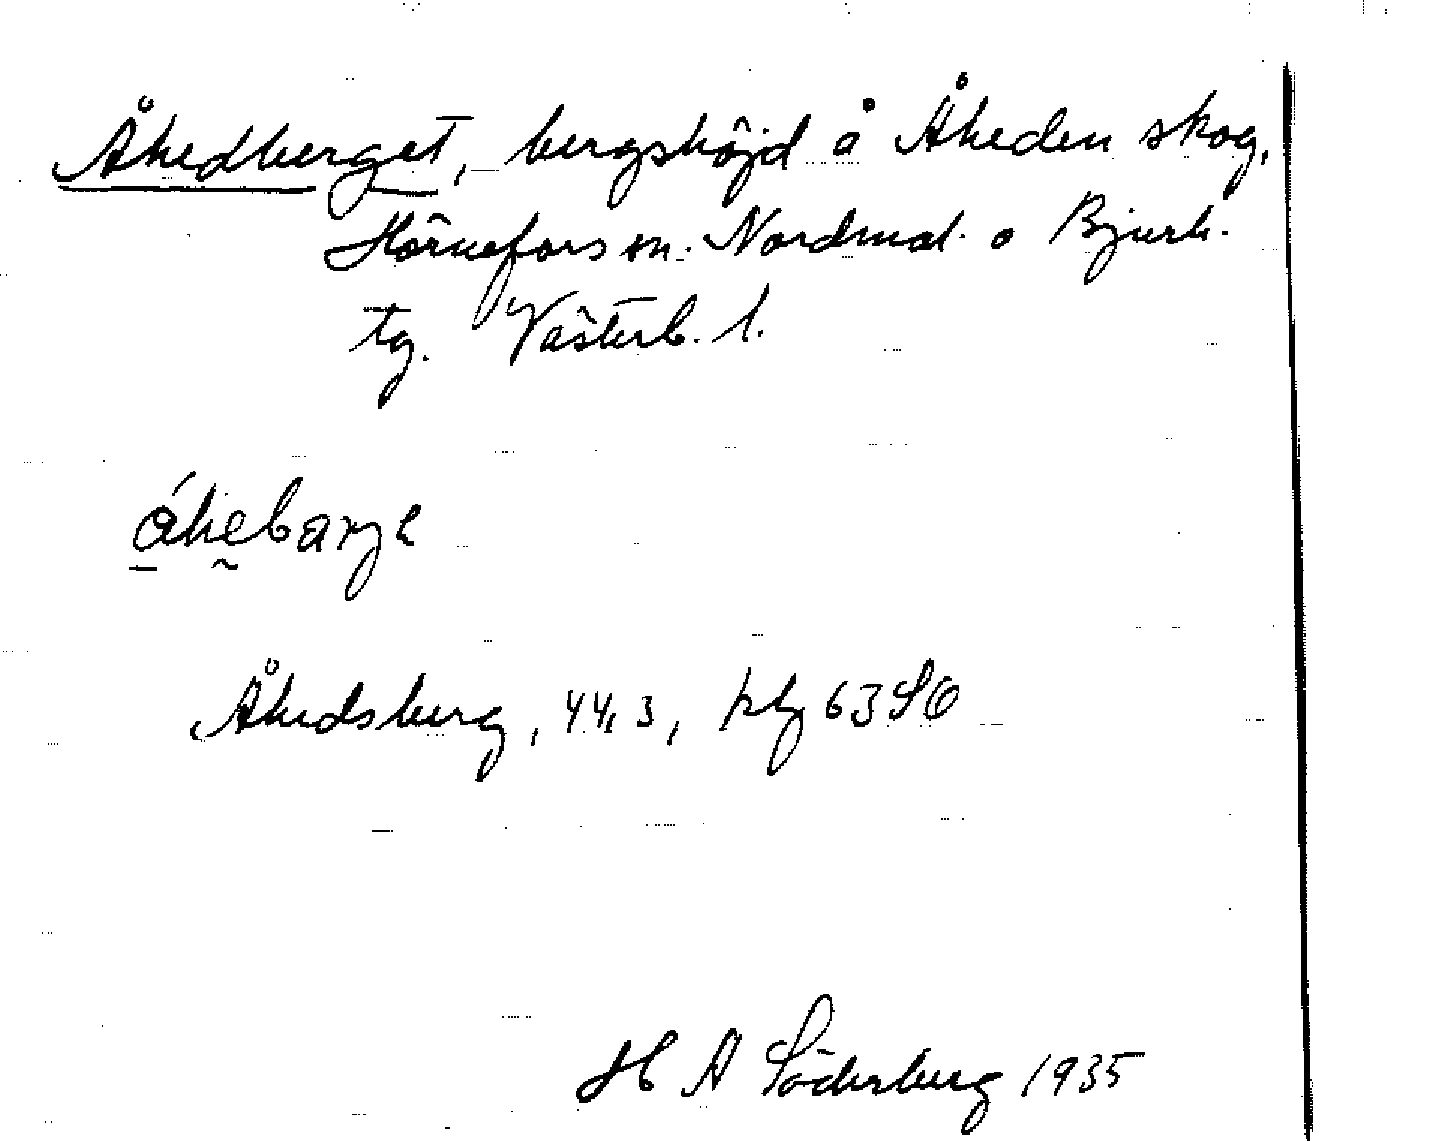 Åhedberget, bergshöjd å Åheden skog,
Hörnefors sn. Nordmal. o Bjurh.
tg. Västerb. l.
åhebarje
Åhedsberg, 44,3, kbl 63 SO
H A Söderberg 1935